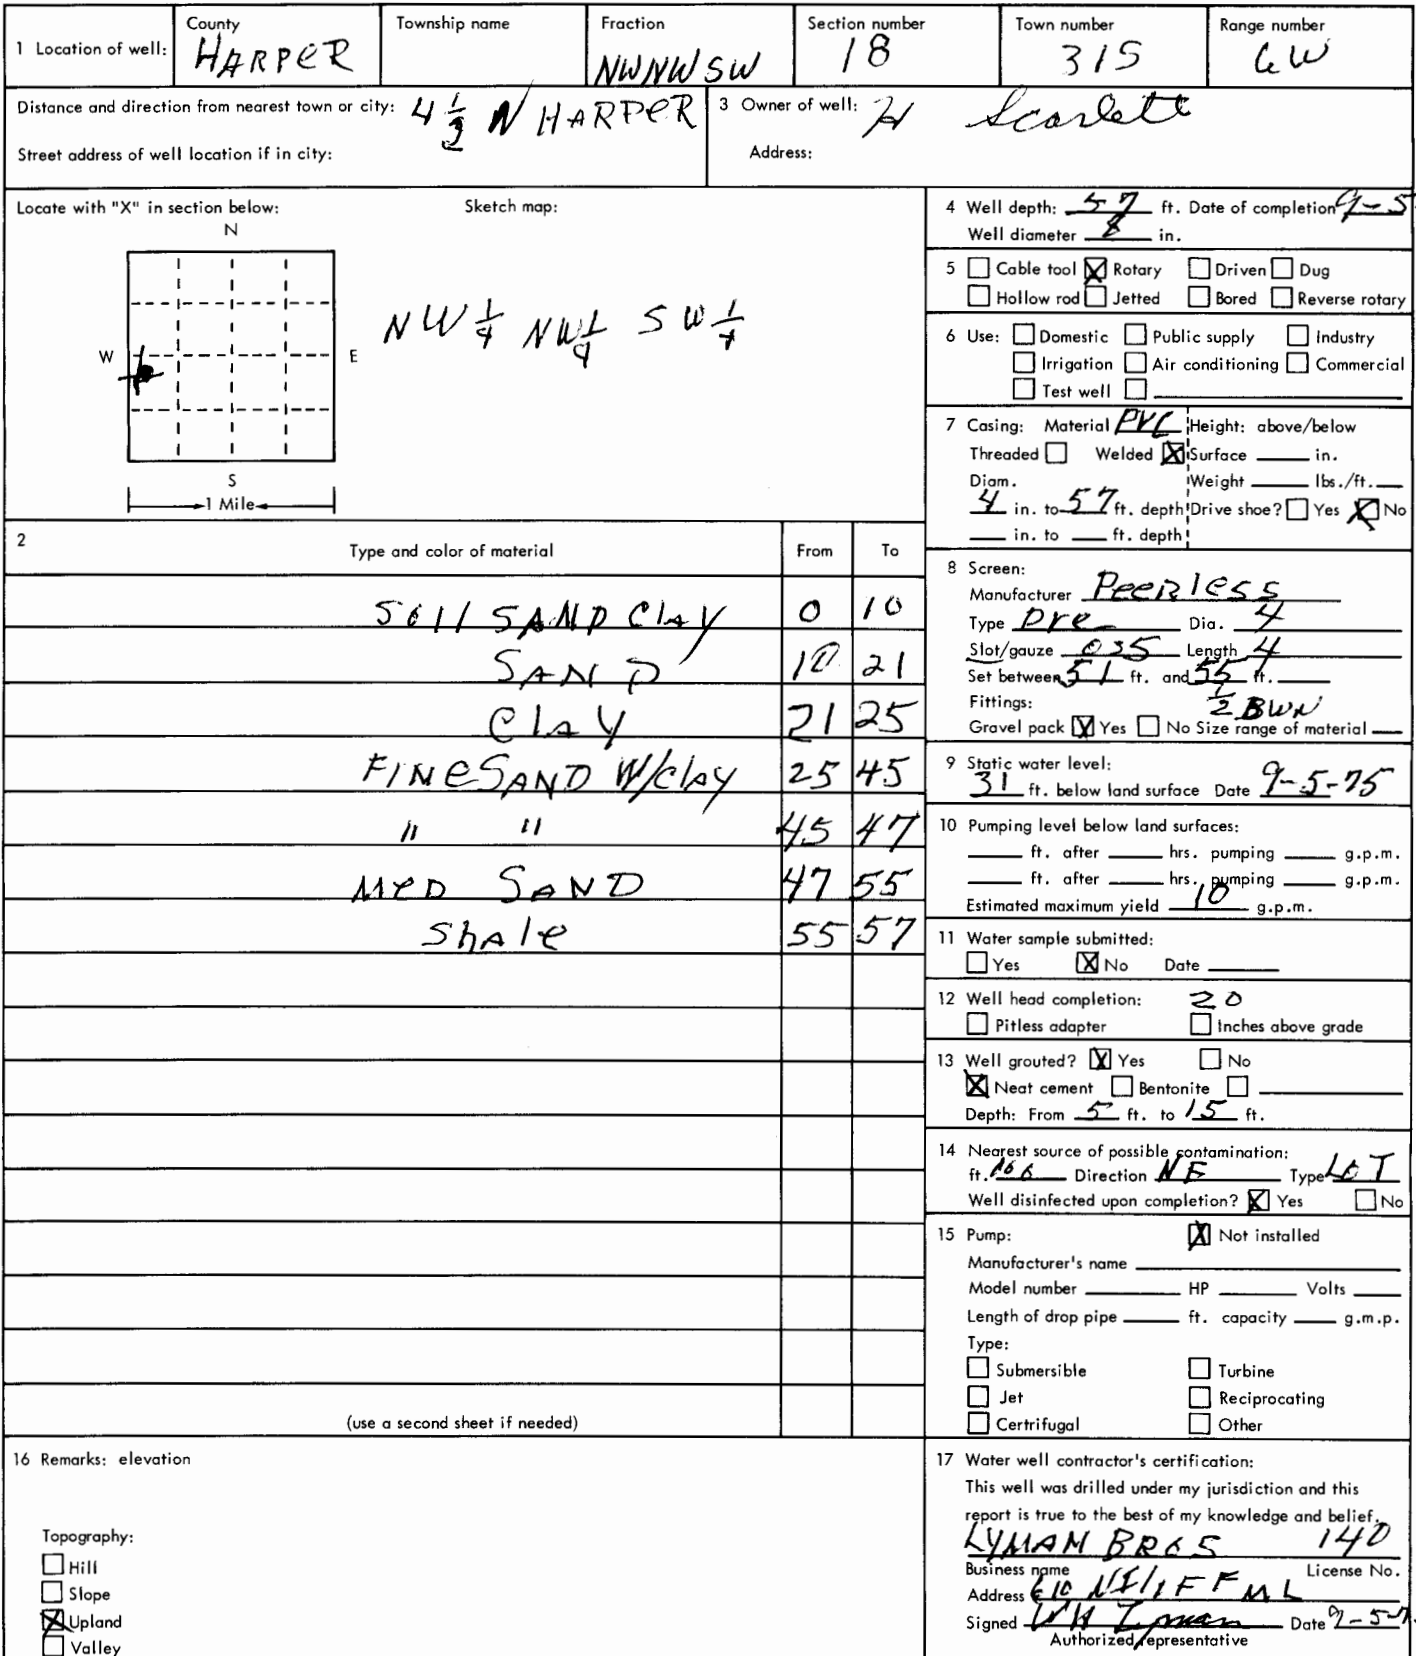 1 Location of well: County HARPER Township name Fraction NWNWSW Section number 18 Town number 31S Range number 6W
Distance and direction from nearest town or city: 4 1/2 N HARPER 3 Owner of well: H Scarlett
Street address of well location if in city: Address:
Locate with "X" in section below: Sketch map:
N
W E
S
1 Mile
NW 1/4 NW 1/4 SW 1/4
4 Well depth: 57 ft. Date of completion 9-5
Well diameter 8 in.
5 Cable tool X Rotary Driven Dug
Hollow rod Jetted Bored Reverse rotary
6 Use: Domestic Public supply Industry
Irrigation Air conditioning Commercial
Test well
7 Casing: Material PVC Height: above/below
Threaded Welded X Surface in.
Diam. Weight lbs./ft.
4 in. to 57 ft. depth Drive shoe? Yes X No
in. to ft. depth
2 Type and color of material From To
SOIl SAND ClAY 0 10
SAND 10 21
ClAY 21 25
FINE SAND W/ClAY 25 45
" " 45 47
MED SAND 47 55
ShAle 55 57
(use a second sheet if needed)
8 Screen:
Manufacturer PeeRless
Type Dia. 4
Slot/gauze 035 Length 4
Set between 51 ft. and 55 ft.
Fittings: 1/2 BWN
Gravel pack X Yes No Size range of material
9 Static water level:
31 ft. below land surface Date 9-5-75
10 Pumping level below land surfaces:
ft. after hrs. pumping g.p.m.
ft. after hrs. pumping g.p.m.
Estimated maximum yield 10 g.p.m.
11 Water sample submitted:
Yes X No Date
12 Well head completion: 20
Pitless adapter Inches above grade
13 Well grouted? X Yes No
X Neat cement Bentonite
Depth: From 5 ft. to 15 ft.
14 Nearest source of possible contamination:
ft. Direction NE Type LOT
Well disinfected upon completion? X Yes No
15 Pump: X Not installed
Manufacturer's name
Model number HP Volts
Length of drop pipe ft. capacity g.m.p.
Type:
Submersible Turbine
Jet Reciprocating
Certrifugal Other
16 Remarks: elevation
Topography:
Hill
Slope
X Upland
Valley
17 Water well contractor's certification:
This well was drilled under my jurisdiction and this
report is true to the best of my knowledge and belief.
LYMAN BROS 140
Business name License No.
Address 610
Signed WH Lyman Date 9-5-7
Authorized representative